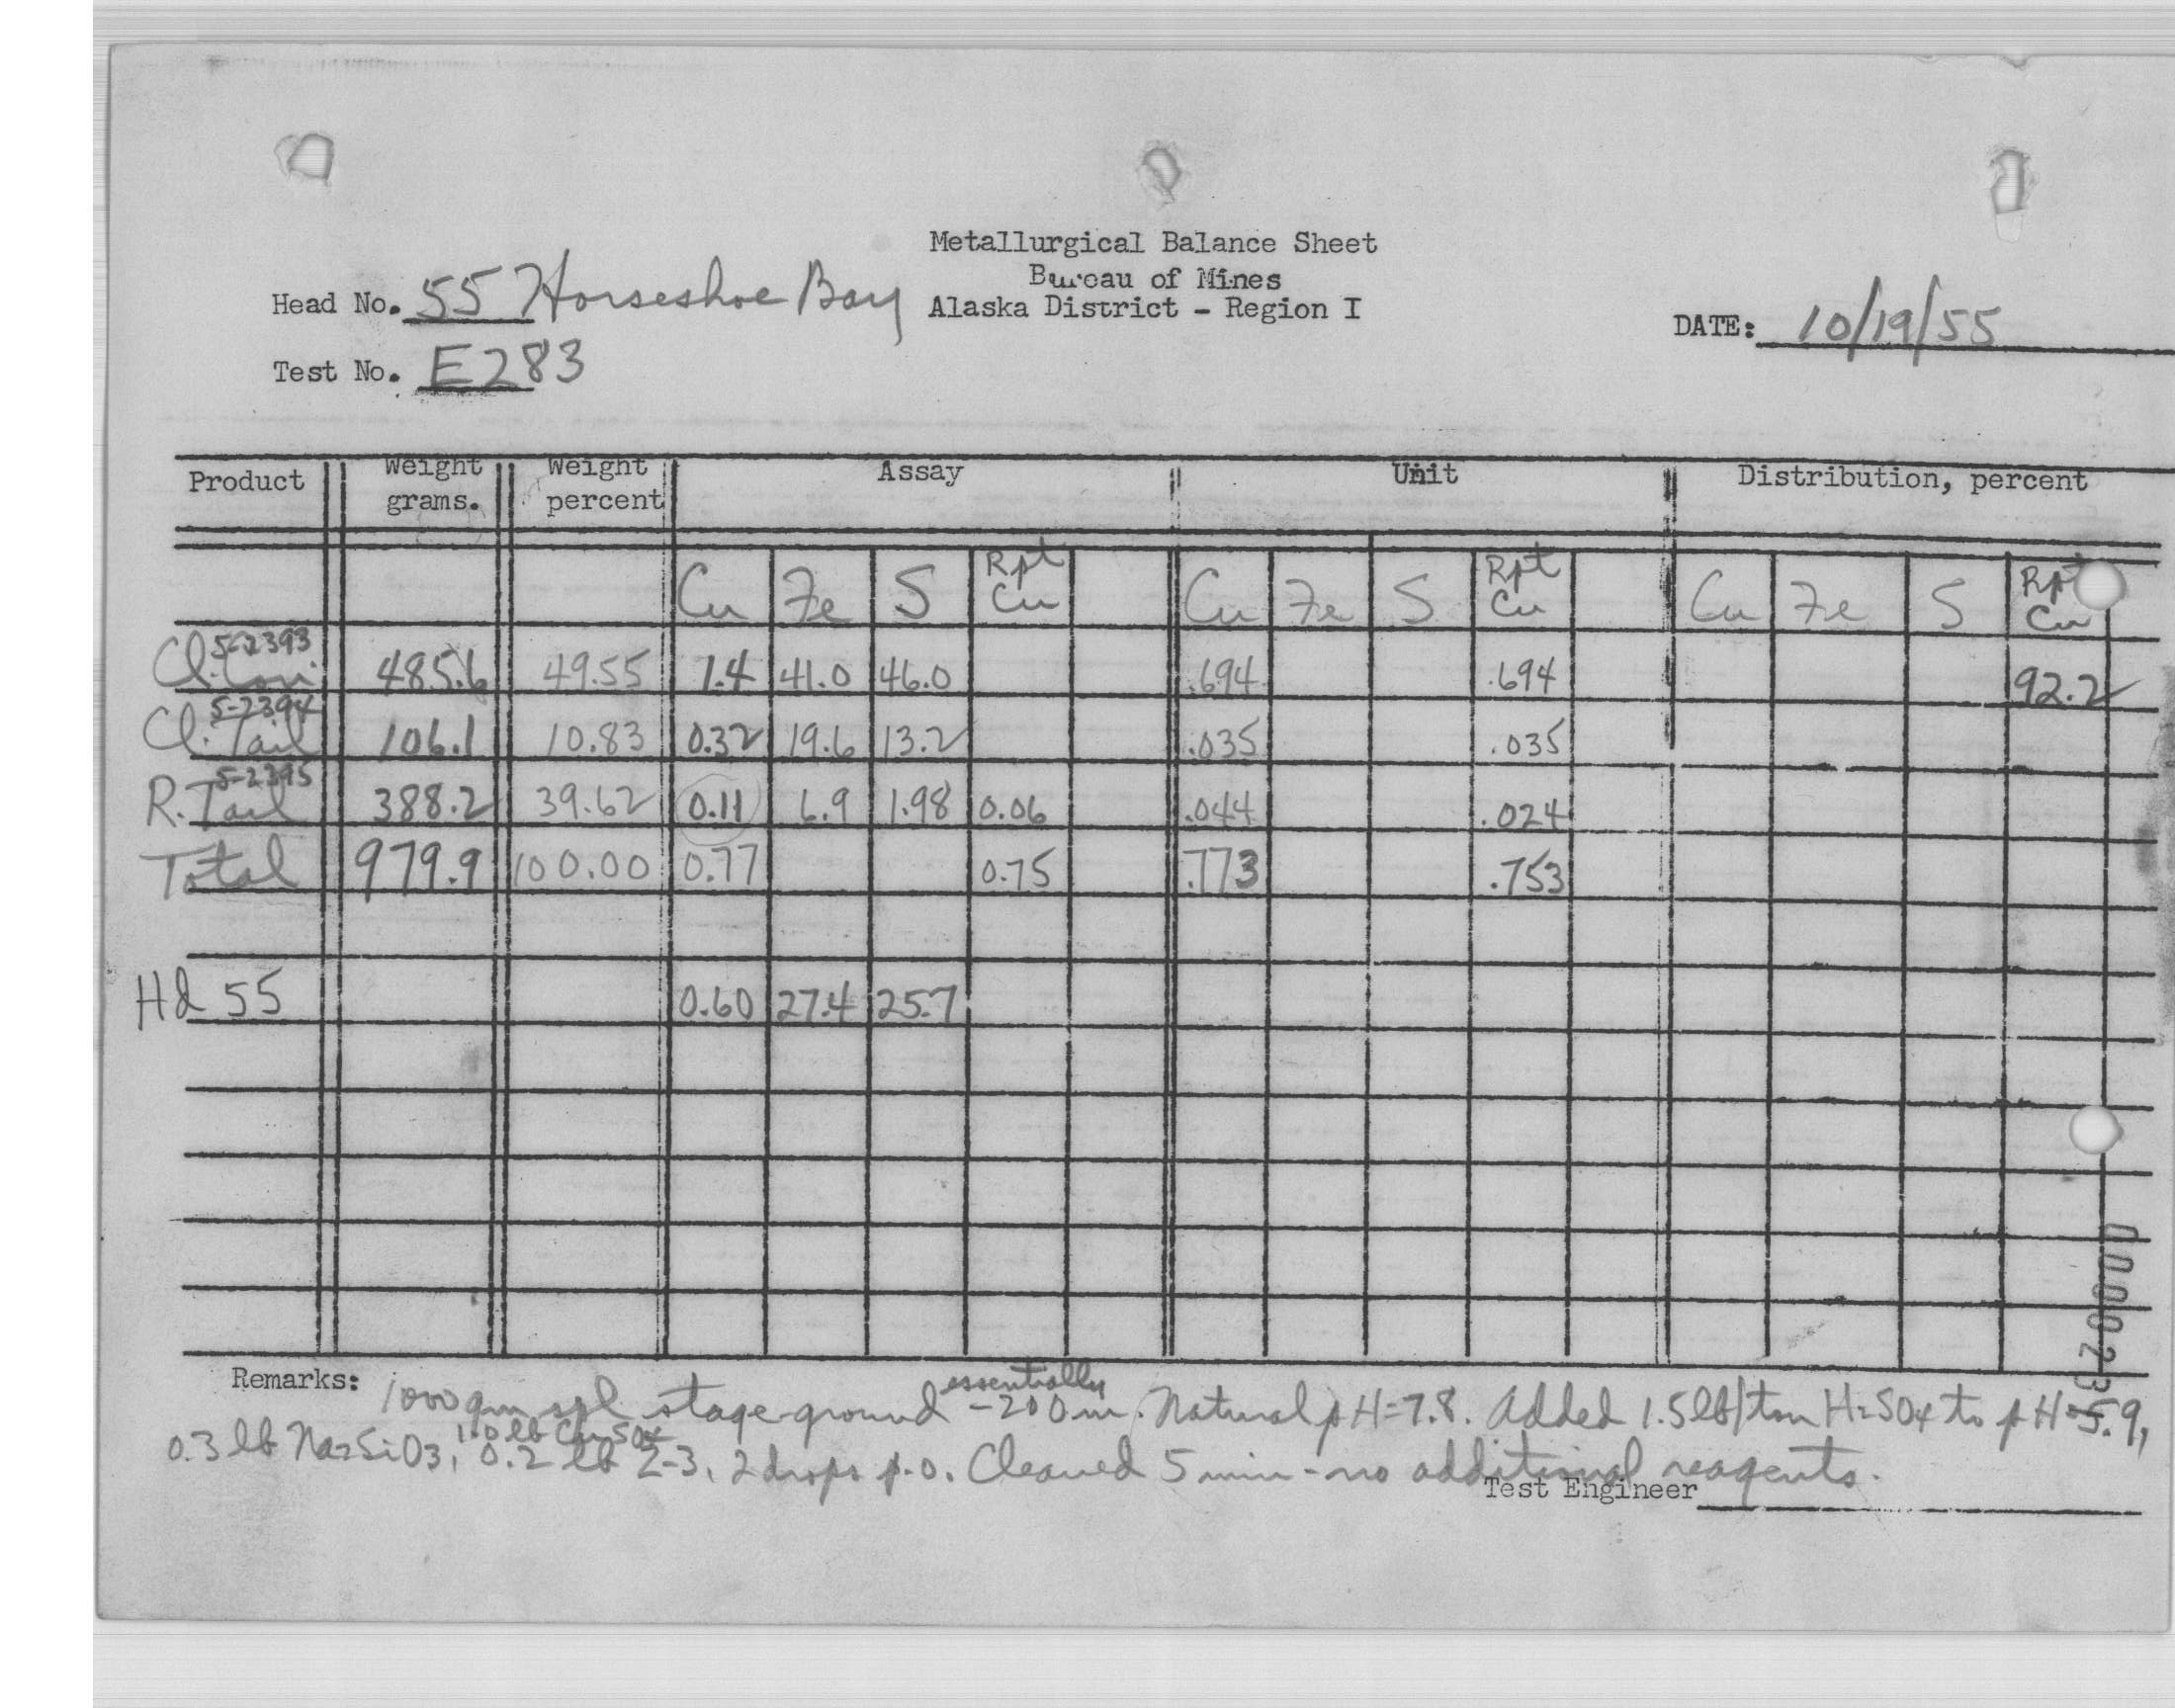 Metallurgical Balance Sheet
Bureau of Mines
Alaska District - Region I
Head No. 55 Horseshoe Bay
DATE: 10/19/55
Test No. E283
Product Weight grams. Weight percent Assay Unit Distribution, percent
Cu Fe S Rpt Cu Cu Fe S Rpt Cu Cu Fe S Rpt Cu
5-2393
Cl. Con. 485.6 49.55 1.4 41.0 46.0 .694 .694 92.2
5-2394
Cl. Tail 106.1 10.83 0.32 19.6 13.2 .035 .035
5-2395
R. Tail 388.2 39.62 0.11 6.9 1.98 0.06 .044 .024
Total 979.9 100.00 0.77 0.75 .773 .753
Hd 55 0.60 27.4 25.7
Remarks: 1000 gm spl stage-ground essentially -200 m. Natural pH=7.8. Added 1.5 lb/ton H2SO4 to pH=5.9,
1.0 lb CuSO4
0.3 lb Na2SiO3, 0.2 lb Z-3, 2 drops p.o. Cleaned 5 min - no additional reagents.
Test Engineer